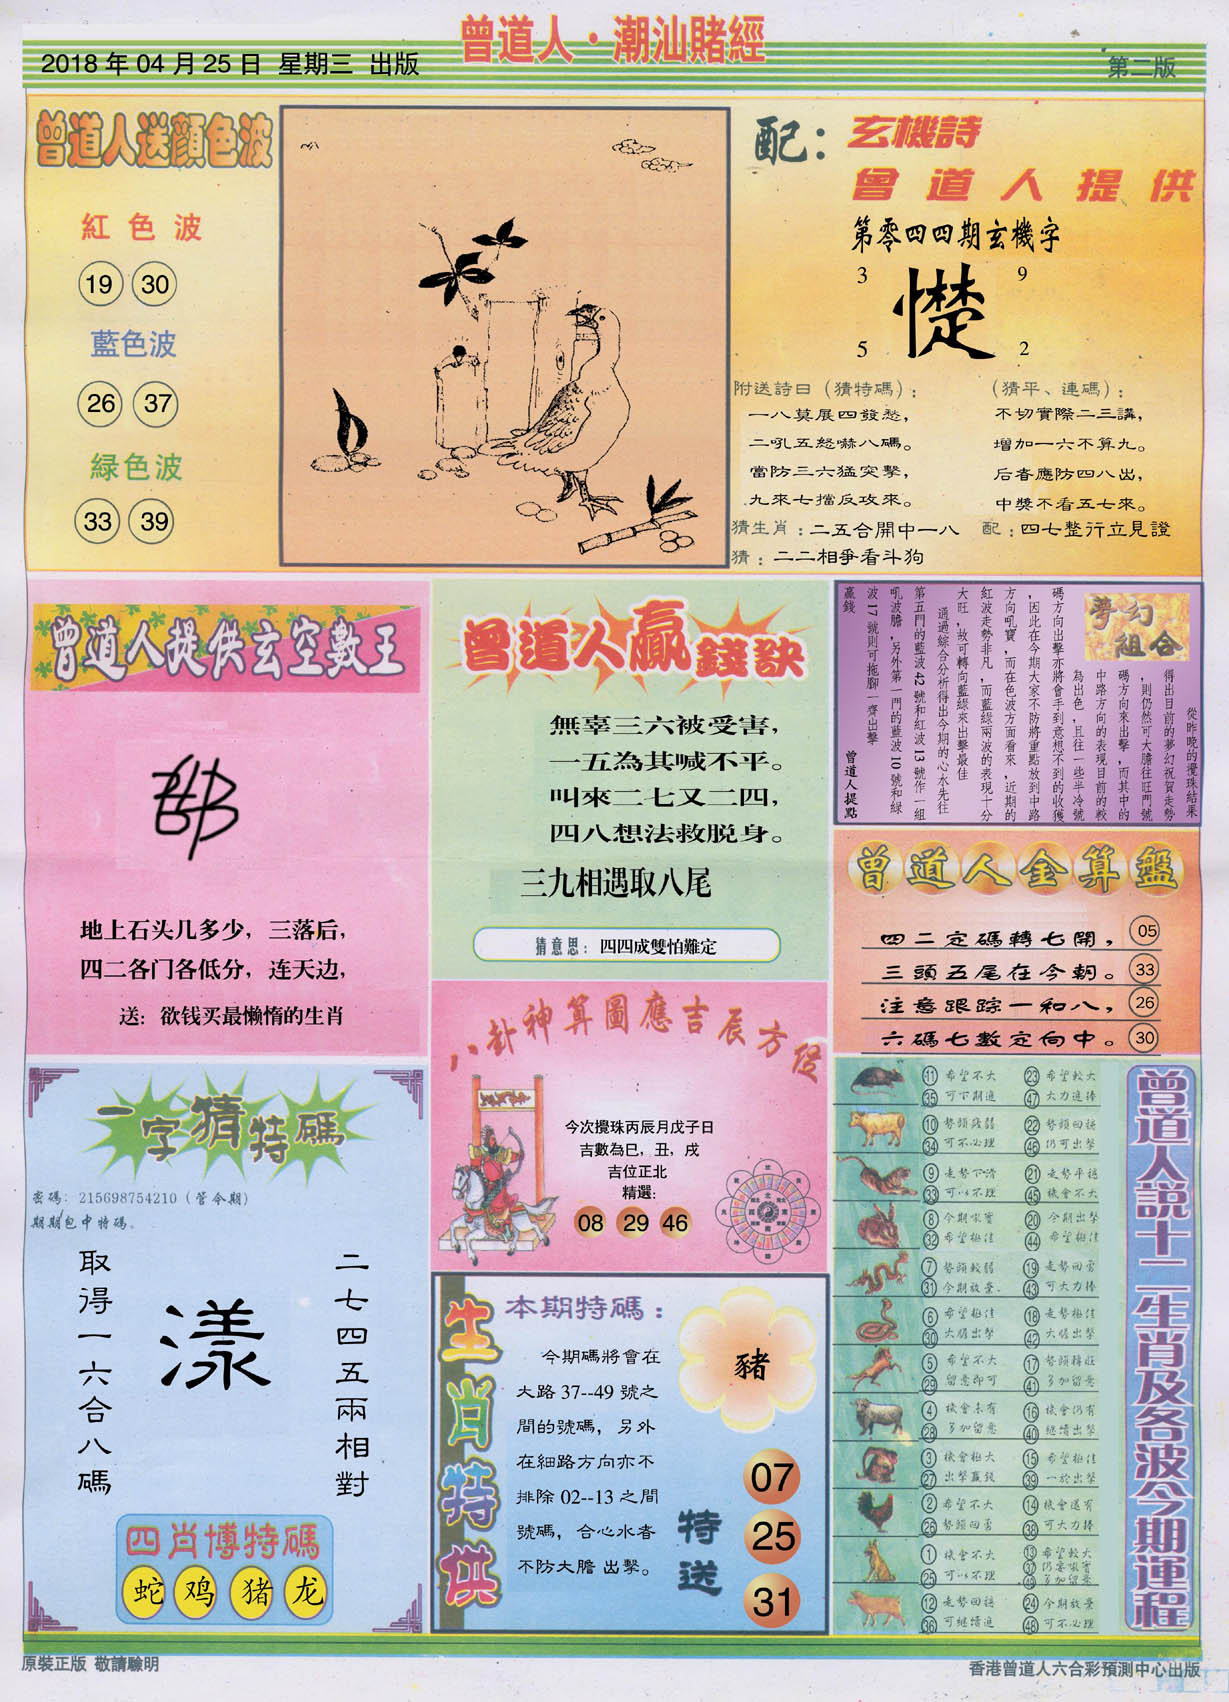 曾道人·潮汕賭經
2018 年 04 月 25 日 星期三 出版
第二版
曾道人送顏色波
紅色波
19 30
藍色波
26 37
緑色波
33 39
配：玄機詩
曾道人提供
第零四四期玄機字
3 9
憷
5 2
附送詩曰（猜特碼）：
一八莫展四發愁，
二吼五怒嚇八碼。
當防三六猛突擊，
九來七擋反攻來。
（猜平、連碼）：
不切實際二三講，
增加一六不算九。
后者應防四八出，
中獎不看五七來。
猜生肖：二五合開中一八
配：四七整行立見證
猜：二二相爭看斗狗
曾道人提供玄空數王
地上石头几多少，三落后，
四二各门各低分，连天边，
送：欲钱买最懒惰的生肖
曾道人贏錢訣
無辜三六被受害，
一五為其喊不平。
叫來二七又二四，
四八想法救脱身。
三九相遇取八尾
猜意思：四四成雙怕難定
夢幻組合
從昨晚的攪珠結果
得出目前的夢幻祝賀走勢
，則仍然可大膽往旺門號
碼方向來出擊，而其中的
中路方向的表現目前的較
為出色，且往一些半冷號
碼方向出擊亦將會手到意想不到的收獲
，因此在今期大家不防將重點放到中路
方向吼寶，而在色波方面看來，近期的
紅波走勢非凡，而藍綠兩波的表現十分
大旺，故可轉向藍綠來出擊最佳
通過綜合分析得出今期的心水先往
第五門的藍波 42 號和紅波 13 號作一組
吼波膽，另外第一門的藍波 10 號和緑
波 17 號則可拖腳一齊出擊
贏錢
曾道人提點
曾道人金算盤
四二定碼轉七開，05
三頭五尾在今朝。33
注意跟踪一和八，26
六碼七數定向中。30
一字猜特碼
密碼：215698754210（管今期）
期期包中特碼。
二七四五兩相對
漾
取得一六合八碼
四肖博特碼
蛇 鸡 豬 龙
八卦神算圖應吉辰方位
今次攪珠丙辰月戊子日
吉數為巳，丑，戌
吉位正北
精選：
08 29 46
生肖特供
本期特碼：
今期碼將會在
大路 37--49 號之
間的號碼，另外
在細路方向亦不
排除 02--13 之間
號碼，合心水者
不防大膽 出擊。
豬
特送
07
25
31
曾道人說十二生肖及各波今期運程
11 希望不大 23 希望較大
35 可下期進 47 大力進捧
10 勢頭變弱 22 勢頭回穩
34 可不必理 46 仍可出擊
9 走勢下滑 21 走勢平穩
33 可以不理 45 機會不大
8 今期吼寶 20 今期出擊
32 希望極佳 44 希望極佳
7 勢頭較弱 19 走勢回勇
31 今期放棄 43 可大力捧
6 希望極佳 18 走勢極佳
30 大膽出擊 42 大膽出擊
5 希望不大 17 勢頭轉旺
29 留意即可 41 多加留意
4 機會未有 16 機會仍有
28 多加留意 40 繼續出擊
3 機會極大 15 希望極佳
27 出擊贏錢 39 一於出擊
2 希望不大 14 機會還有
26 勢頭回勇 38 可大力捧
1 機會不大 13 希望較大
25 可以不理 37 仍要吼寶
49 多加留意
12 走勢回穩 24 今期放棄
36 可繼續進 48 可不必理
原裝正版 敬請驗明
香港曾道人六合彩預測中心出版